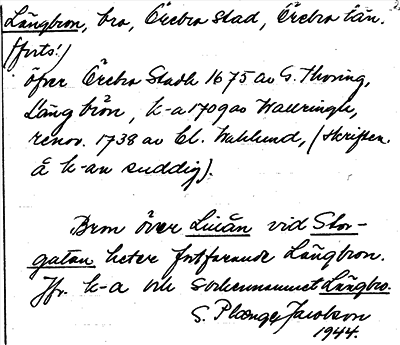 Långbron, bro, Örebro stad, Örebro län.
(forts.)
öfver Örebro Stadh 1675 av G. Thoring,
Lång brön, k-a 1709 av Wallringh,
renov. 1738 av Cl. Wahlund, (skriften
å k-an suddig).
Bron över Lillån vid Stor-
gatan heter fortfarande Långbron.
Jfr. k-a och sockennamnet Längbro.
S. Plænge Jacobson
1944.